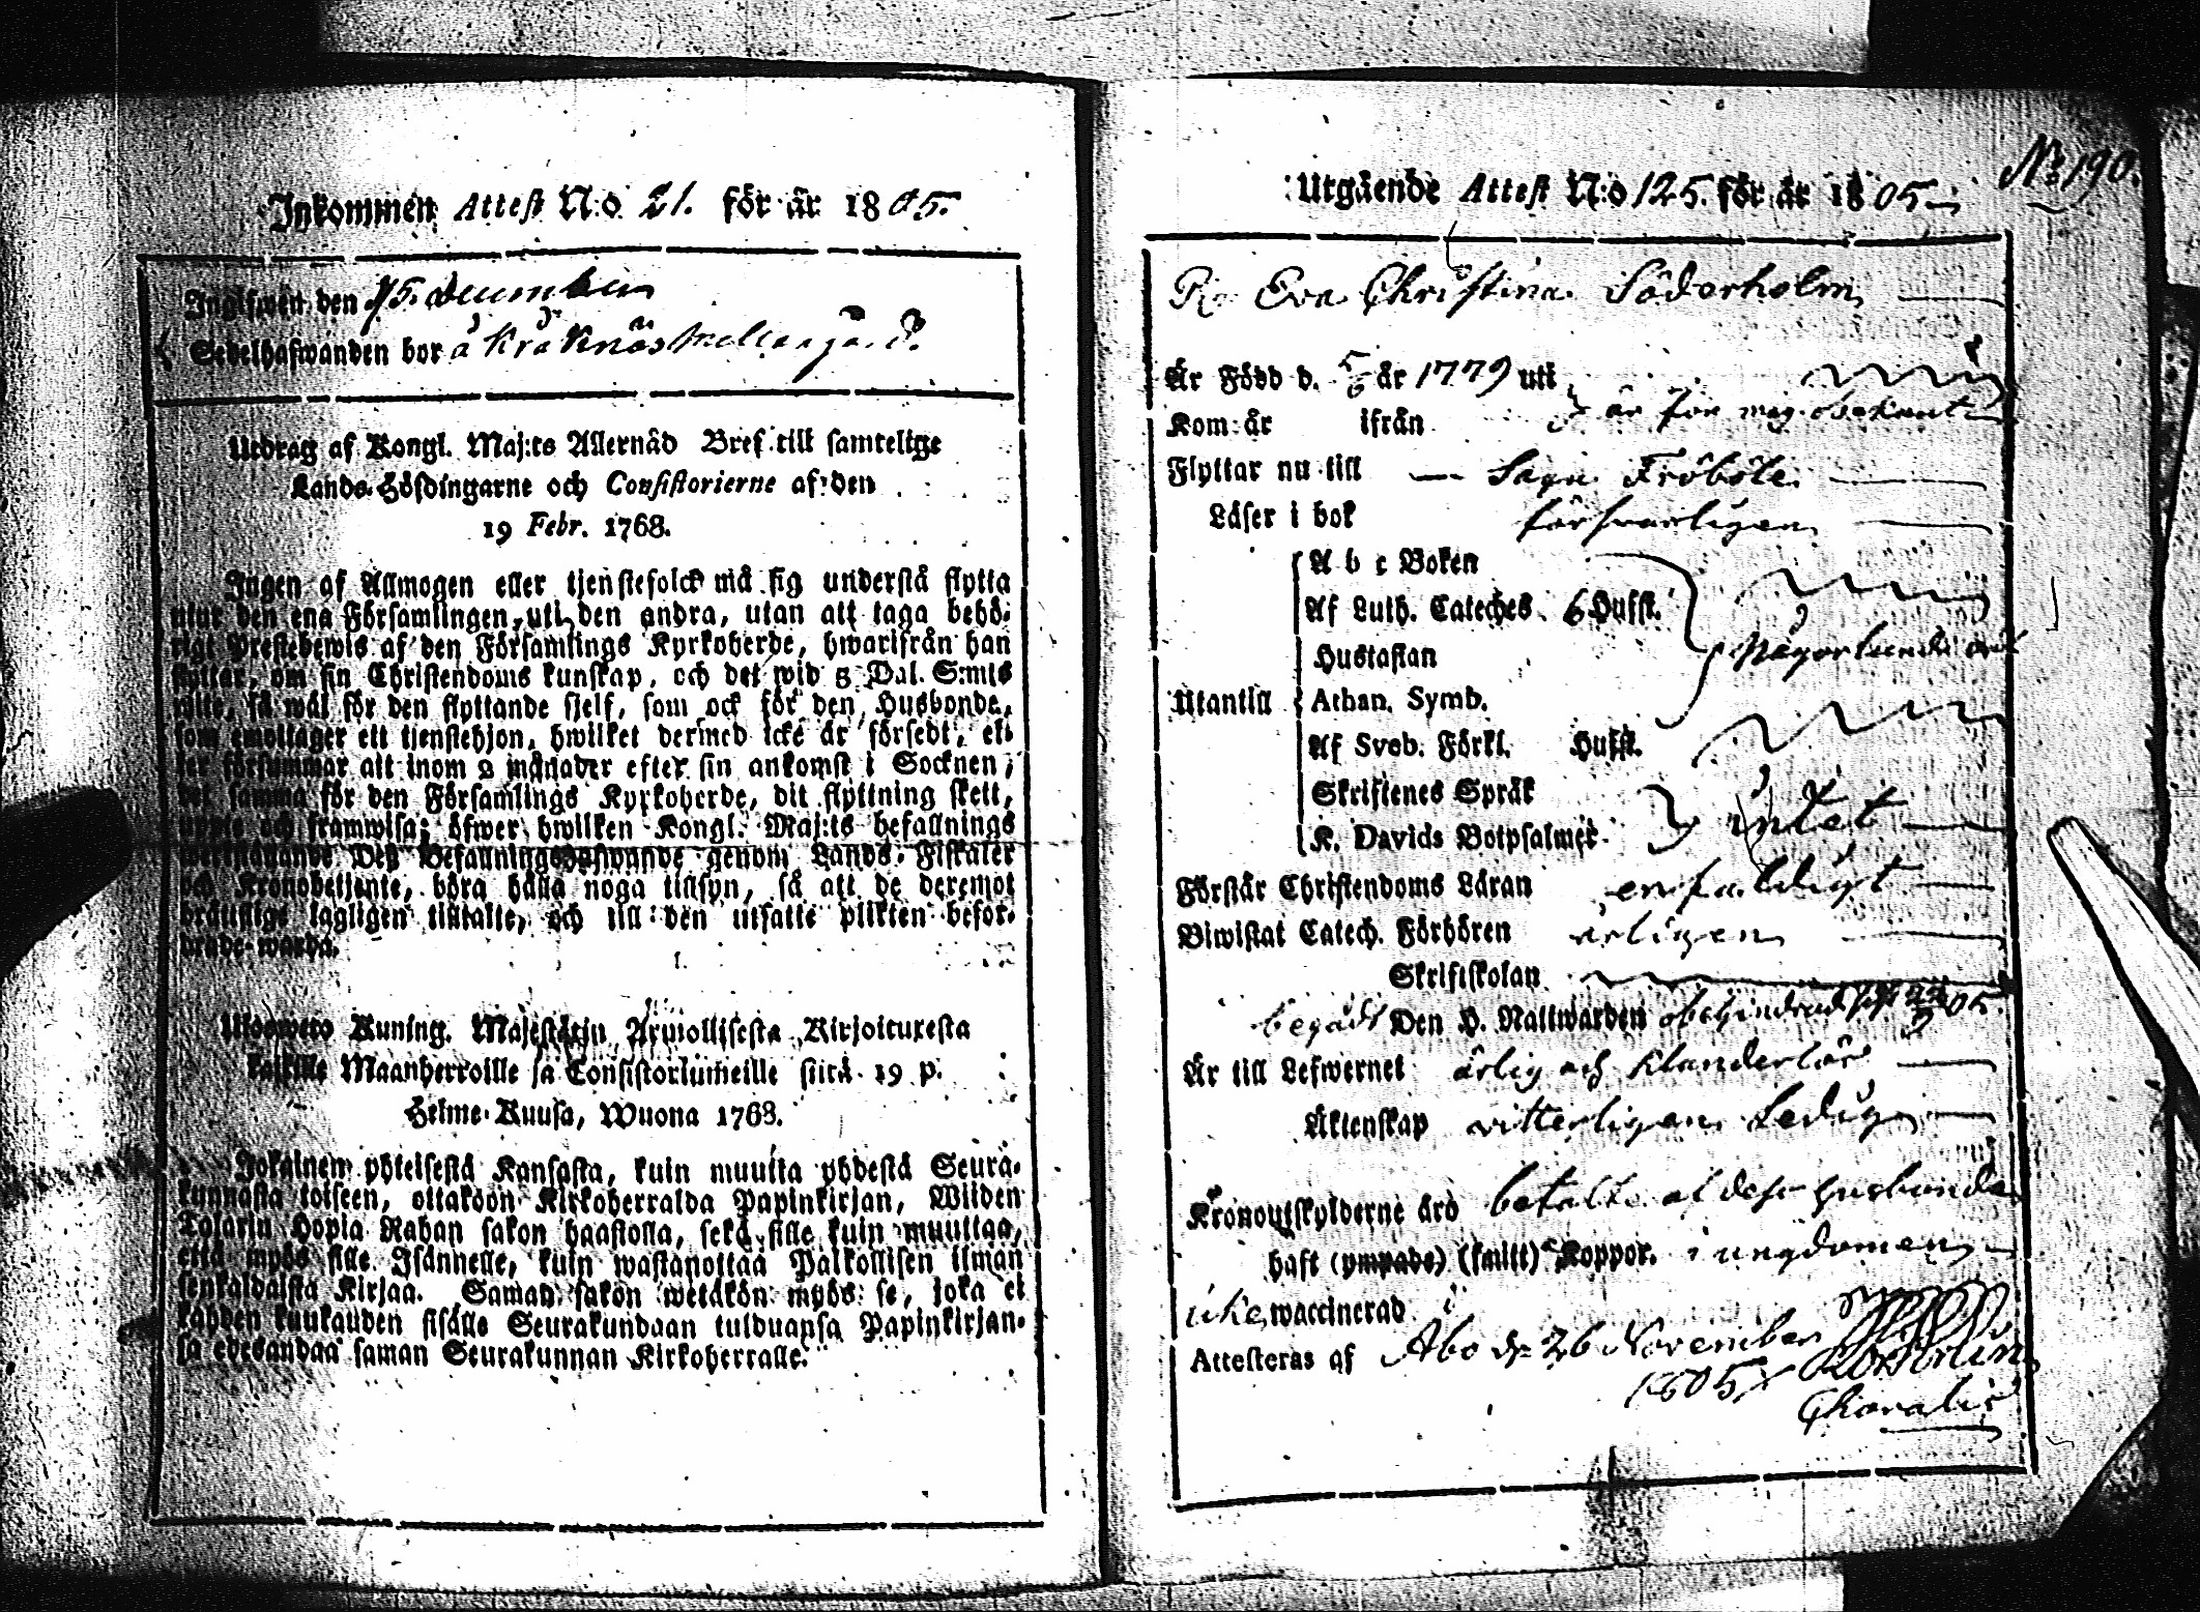 Inkommen Attest N:o 21. för år 1805.
Inglfwen den 15. December
Sedelhafwanden bor å Kråknäs Mellangård.
Utdrag af Kongl. Maj:ts Allernåd Bref till samtelige
Lands-Höfdingarne och Consistorierne af den
19 Febr. 1768.
Ingen af Allmogen eller tjenstefolck må sig understå flytta
utur den ena Församlingen, uti den andra, utan att taga behö-
rigt Prestebewis af den Församlings Kyrkoherde, hwarifrån han
flyttar, om sin Christendoms kunskap, och det wid 3 Dal. S:mts
wite, så wäl för den flyttande sjelf, som ock för den Husbonde,
som emottager ett tjenstehjon, hwilket dermed icke är försedt, el-
ler försummar att inom 2 månader efter sin ankomst i Socknen,
det samma för den Församlings Kyrkoherde, dit flyttning skett,
uppte och framwisa; öfwer hwilken Kongl. Maj:ts befallnings
werkställande Deß Befallningshafwande genom Lands-Fiskaler
och Kronobetjente, böra hålla noga tillsyn, så att de deremot
bråttslige lagligen tilltalte, och till den utsatte plikten befor-
drade warda.
Uloswedo Kuning. Majestätin Armollisesta Kirjoituxesta
kaikille Maanherroille ja Consistoriumeille siitä 19 p.
Helme-Kuusa, Wuona 1768.
Jokainen yhteisestä Kansasta, kuin muutta yhdestä Seura-
kunnasta toiseen, ottakoon Kirkoherralda Papinkirjan, Wiiden
Talarin Hopia Rahan sakon haastolla, sekä sille kuin muuttaa,
että myös sille Isännelle, kuin wastanottaa Palkollisen ilman
senkaldaista Kirjaa. Saman sakon wetäkön myös se, joka ei
kahden kuukauden sisälle Seurakundaan tulduansa Papinkirjan-
sa edesandaa saman Seurakunnan Kirkoherralle.
N:o 190.
Utgående Attest N:o 125. för år 1805
Eva Christina Söderholm
Är Född d. 5/6 år 1779 uti
Kom år ifrån är för mig obekant
Flyttar nu till Sagu Fröböle
Läser i bok försvarligen
A b c Boken
Af Luth. Cateches 6 Hufst.
Hustaflan någorlunda
Utantill Athan. Symb.
Af Sveb. Förkl. Hufst.
Skriftenes Språk
K. Davids Botpsalmer intet
Förstår Christendoms Läran enfaldigt
Biwistat Catech. Förhören årligen
Skriftskolan
begådt Den H. Nattwarden obehindrad 05.
Är till Lefwernet ärlig och klanderlös
Äktenskap vitterligen Ledig
Kronoutskylderne äro betalte af dess husbonde
haft (ympade) (smitt) Koppor. i ungdomen
icke waccinerad
Attesteras af Åbo d. 26 November
1805